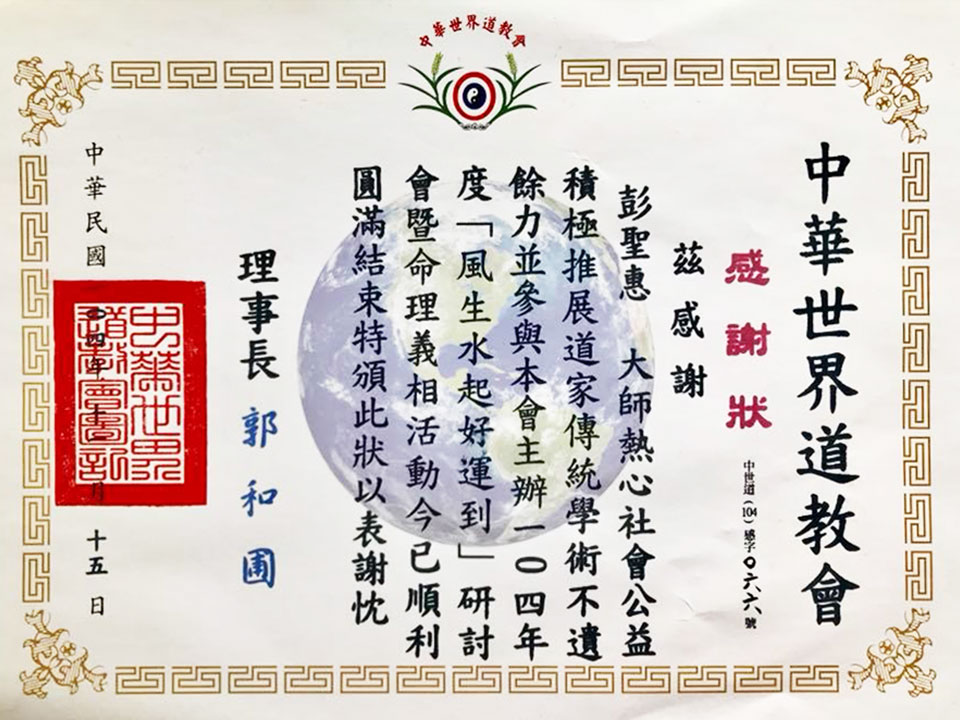 中華世界道教會
中華世界道教會
感謝狀
中世道(104)感字〇六六號
茲感謝
彭聖惠 大師熱心社會公益
積極推展道家傳統學術不遺
餘力並參與本會主辦一〇四年
度「風生水起好運到」研討
會暨命理義相活動今已順利
圓滿結束特頒此狀以表謝忱
理事長 郭和圃
中華民國一〇四年十二月十五日